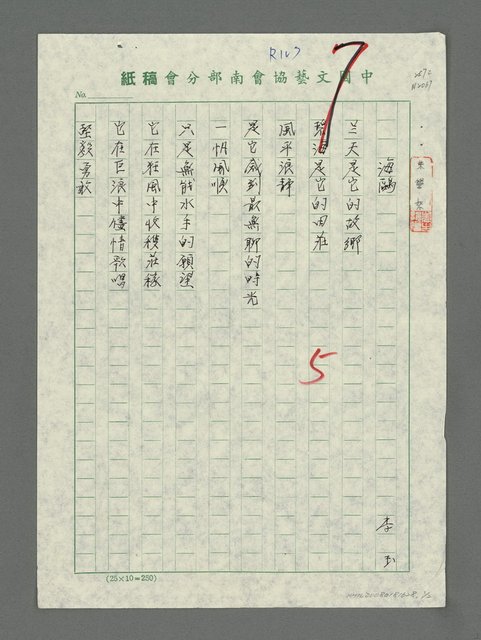 中國文藝協會南部分會稿紙
No.
R107
7
海鷗
李玉
兰天是它的故鄉
碧海是它的田莊
風平浪靜
是它感到最無聊的時光
一帆風順
只是無能水手的願望
它在狂風中收穫莊稼
它在巨浪中儘情歌唱
堅毅勇敢
5
(25×10=250)